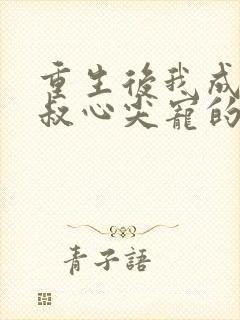 重生後我成
叔心尖寵的
青子語